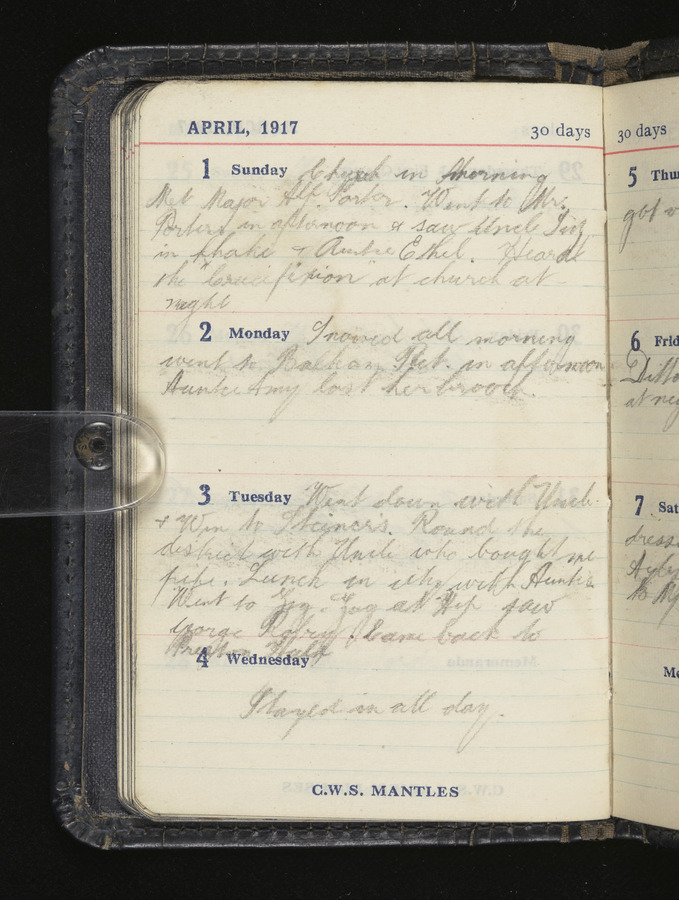 APRIL, 1917 30 days
1 Sunday Church in morning
Met Major Alf. Porter. Went to Mr.
Porters in afternoon & saw Uncle
in & Auntie Ethel. Heard
the "Crucifixion" at church at
night
2 Monday Snowed all morning
went to Balham Thet. in afternoon
Auntie Amy lost her brooch.
3 Tuesday Went down with Uncle
& Win to Steiners. Round the
district with Uncle who bought me
pipe. Lunch in city with Auntie
Went to Zig-Zag at Hip saw
George Robey. Came back to
Preston
4 Wednesday
Stayed in all day.
C.W.S. MANTLES
30 days
5 Thu
got
6 Frid
Ditto
at
7 Sat
dress
to
Me